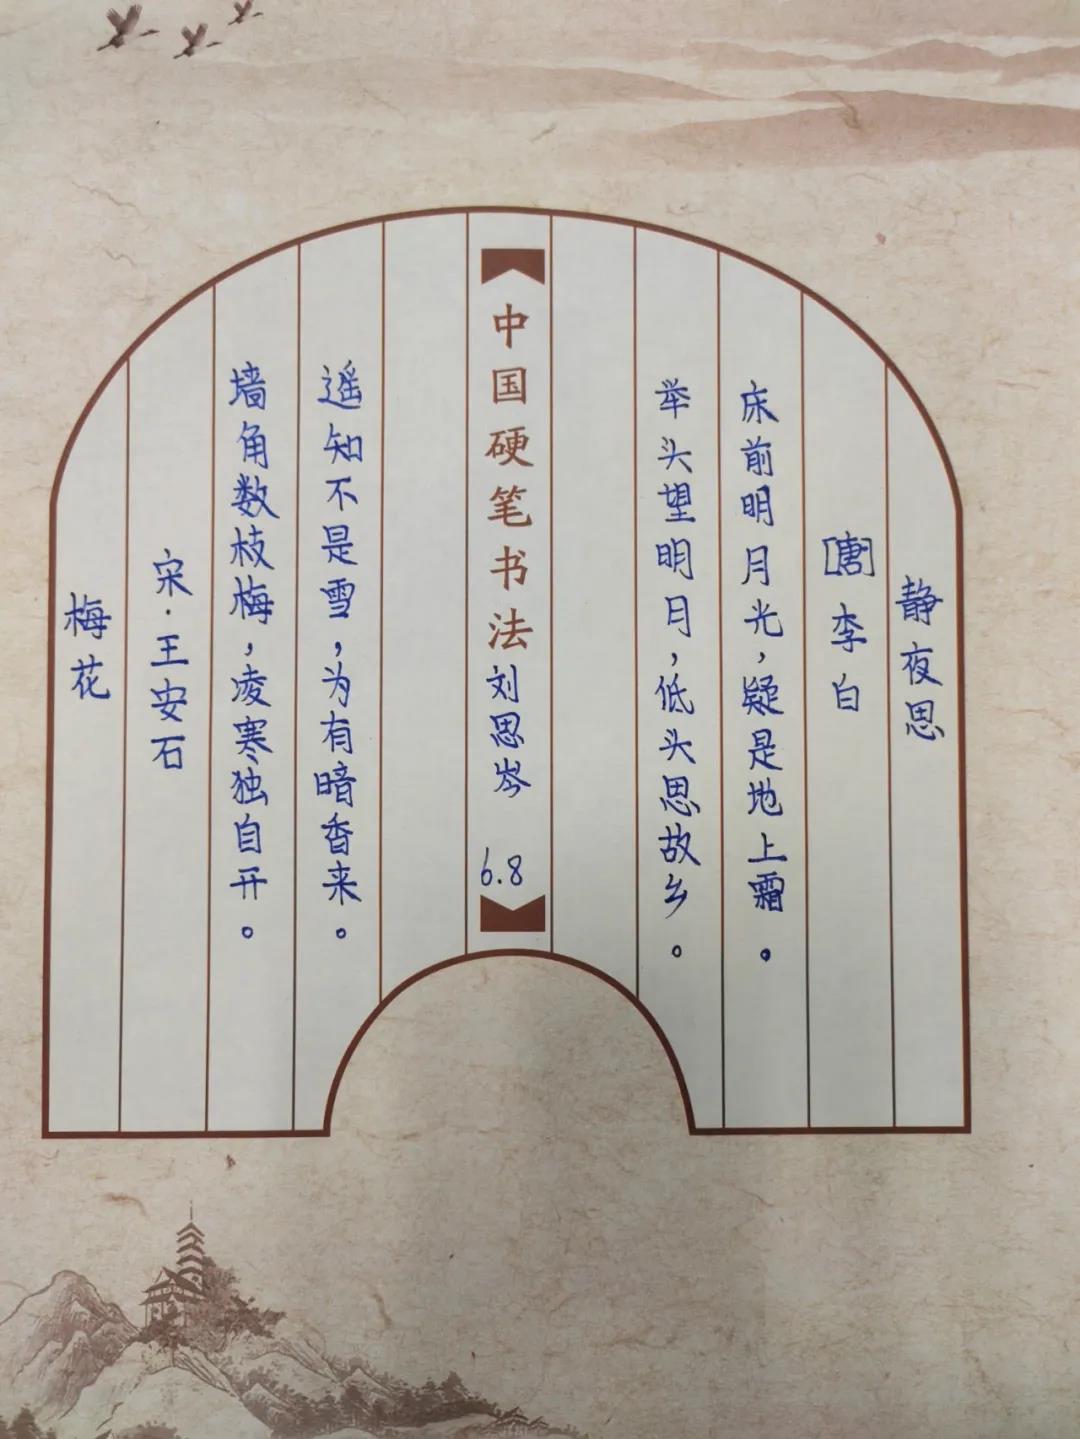 静夜思
[唐]李白
床前明月光,疑是地上霜。
举头望明月,低头思故乡。
中国硬笔书法
刘思岑 6.8
梅花
宋·王安石
墙角数枝梅,凌寒独自开。
遥知不是雪,为有暗香来。